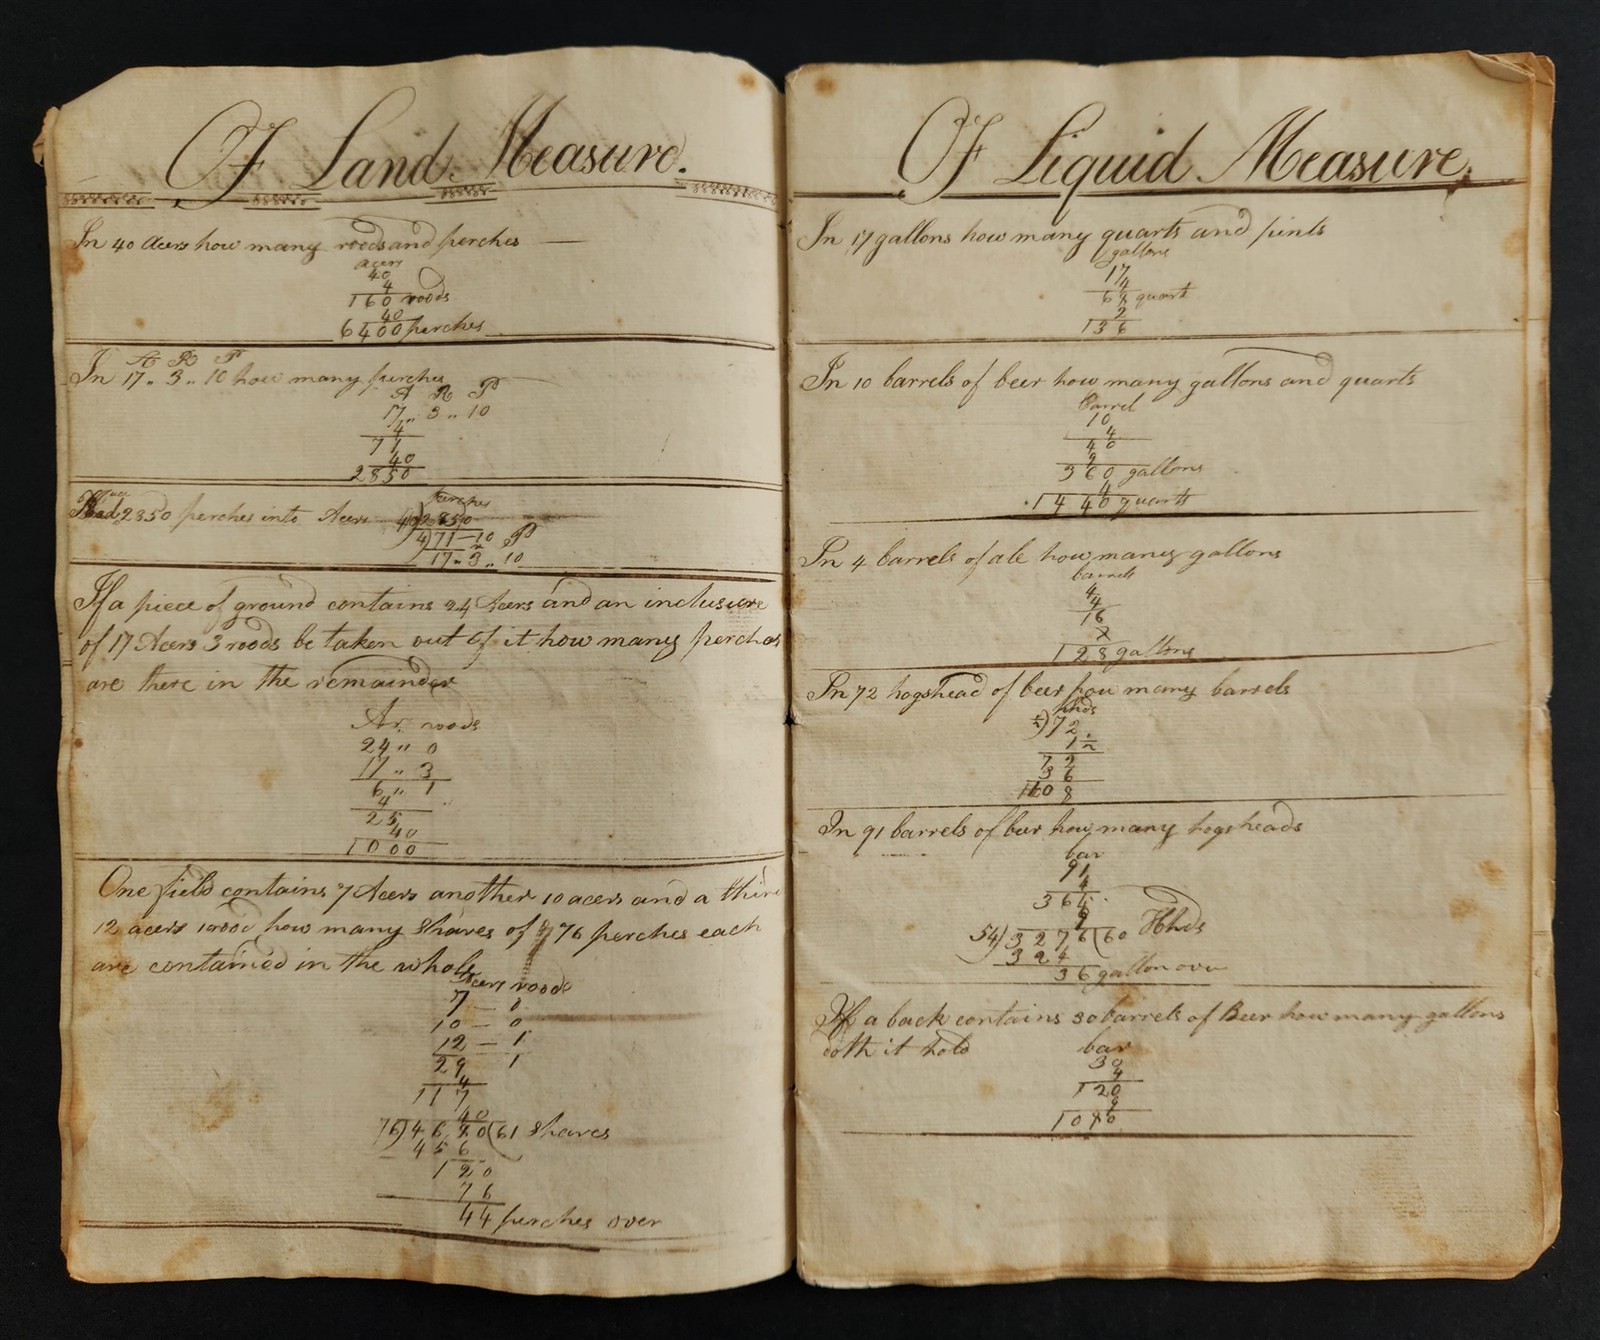 Of Land Measure.
In 40 Acers how many roods and perches
acers
40
4
160 roods
40
6400 perches
A R P
In 17 " 3 " 10 how many perches
A R P
17 " 3 " 10
4
71
40
2850
2850 perches into Acers
perches
40)2850
4)71-10 P
17 " 3 " 10
If a piece of ground contains 24 Acers and an inclusure
of 17 Acers 3 roods be taken out of it how many perches
are there in the remainder
Ar. roods
24 " 0
17 " 3
6 " 1
4
25
40
1000
One field contains 7 Acers another 10 acers and a third
12 acers 1 rood how many Shares of 76 perches each
are contained in the whole
Acers roods
7 - 0
10 - 0
12 - 1
29 1
4
117
40
76)4680(61 Shares
456
120
76
44 perches over
Of Liquid Measure.
In 17 gallons how many quarts and pints
gallons
17
4
68 quart
2
136
In 10 barrels of beer how many gallons and quarts
barrel
10
4
40
9
360 gallons
4
1440 quarts
In 4 barrels of ale how many gallons
barrels
4
4
16
8
128 gallons
In 72 hogshead of beer how many barrels
hhds
½)72
1½
72
36
108
In 91 barrels of beer how many hogsheads
bar
91
4
364
9
54)3276(60 Hhds
324
36 gallon over
If a back contains 30 barrels of Beer how many gallons
doth it hold
bar
30
4
120
9
1080